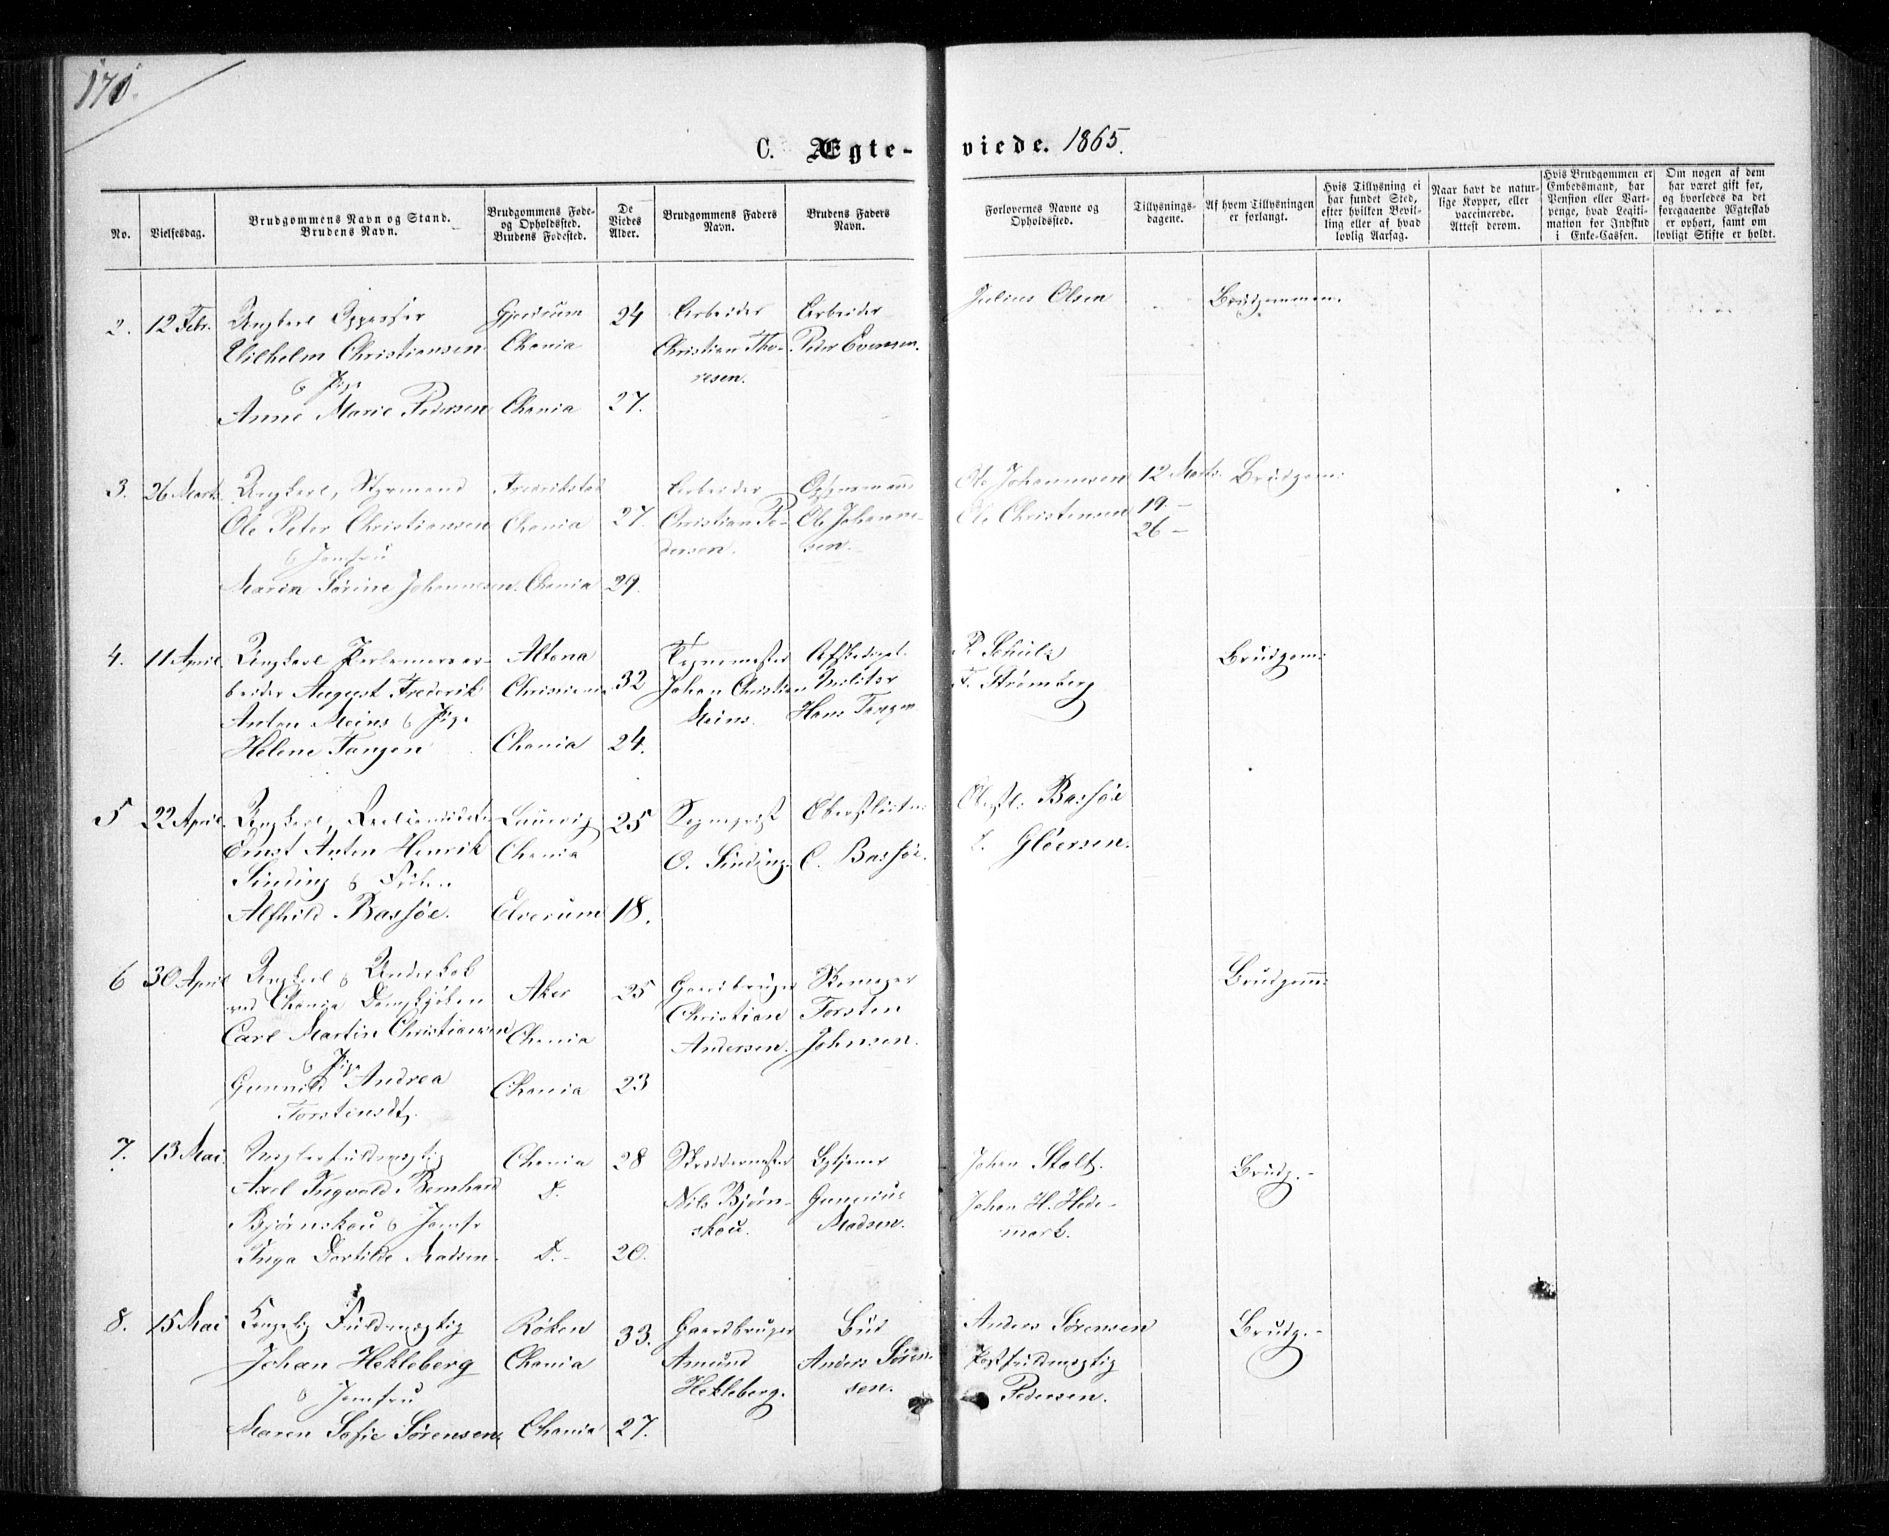 171.
C. Ægte-viede. 1865.
No.
Vielsesdag.
Brudgommens Navn og Stand.
Brudens Navn.
Brudgommens Føde-
og Opholdssted.
Brudens Fødested.
De
Viedes
Alder.
Brudgommens Faders
Navn.
Brudens Faders
Navn.
Forlovernes Navne og
Opholdssted.
Tillysnings-
dagene.
Af hvem Tillysningen
er forlangt.
Hvis Tillysning ei
har fundet Sted,
efter hvilken Bevil-
ling eller af hvad
lovlig Aarsag.
Naar havt de natur-
lige Kopper, eller
vaccinerede.
Attest derom.
Hvis Brudgommen er
Embedsmand, har
Pension eller Vart-
penge, hvad Legiti-
mation for Indskud
i Enke-Cassen.
Om nogen af dem
har været gift før,
og hvorledes da det
foregaaende Ægteskab
er ophørt, samt om
lovligt Skifte er holdt.
2. 12 Febr. Ungkarl Gjerdrum 24 Arbeider Arbeider Julius Olsen Brudgommen.
Vilhelm Christiansen Chania Christian Tho- Peder Evensen.
& Pige resen.
Anne Marie Pedersen Chania 27.
3. 26 Marts Ungkarl, Styrmand Fredrikstad Arbeider Ole Johannesen 12 Marts. Brudgom:
Ole Peter Christiansen Chania 27. Christian Pe- Ole Johanne- Ole Christensen 19. –
& Jomfru dersen. sen. 26 –
Maren Sørine Johannesen. Chania 29.
4. 11 April Ungkarl Altona P. Schulz Brudgom:
beider August Frederik Christiania 32 Johan Christian Militær F. Strømberg
Anton Meins & Pige Meins. Hans Tangen
Helene Tangen Chania 24.
5 22 April Ungkarl, Laurvig 25 Oberstlieutn: Bassøe
Ernst Anton Henrik Chania O. Sinding. C. Bassøe. Gløersen.
Sinding & Frøken
Alfhild Bassøe. Elverum 18.
6 30 April Ungkarl & Aker 25 Gaardbruger Skomager Brudgom:
ved Chania Christian Torsten
Carl Martin Christiansen Chania Andersen. Johnsen.
& Pige
Gunnild Andrea Chania 23
Torstensdt.
7. 13 Mai. Chania 28 Skræddermester Johan Stolt. Brudg. –
Axel Ingvald Bernhard D. Nils Bjørn- Gunerius Johan H. Hede-
Bjørnskou & Jomfr skou. Madsen. mark.
Inga Dortilde Madsen. D. – 20.
8. 15 Mai Fuldmægtig Røken 33. Gaardbruger Bud Anders Sørensen Brudg. –
Johan Hekleberg Chania Amund Anders Søren- Postfuldmægtig
& Jomfru Hekleberg. sen. Pedersen.
Maren Sofie Sørensen. Chania 27.